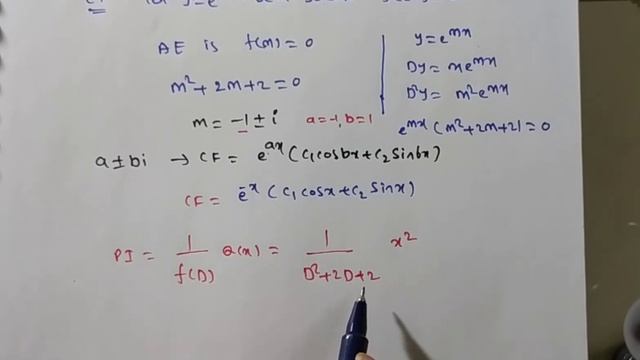 AE is f(m)=0
m²+2m+2=0
m = -1±i a=-1, b=1
y=e^mx
Dy= me^mx
D²y= m²e^mx
e^mx (m²+2m+2)=0
a±bi → CF = e^ax (c₁cosbx+c₂sinbx)
CF= e^-x (c₁cosx+c₂sinx)
PI = 1/f(D) Q(x) = 1/D²+2D+2 x²